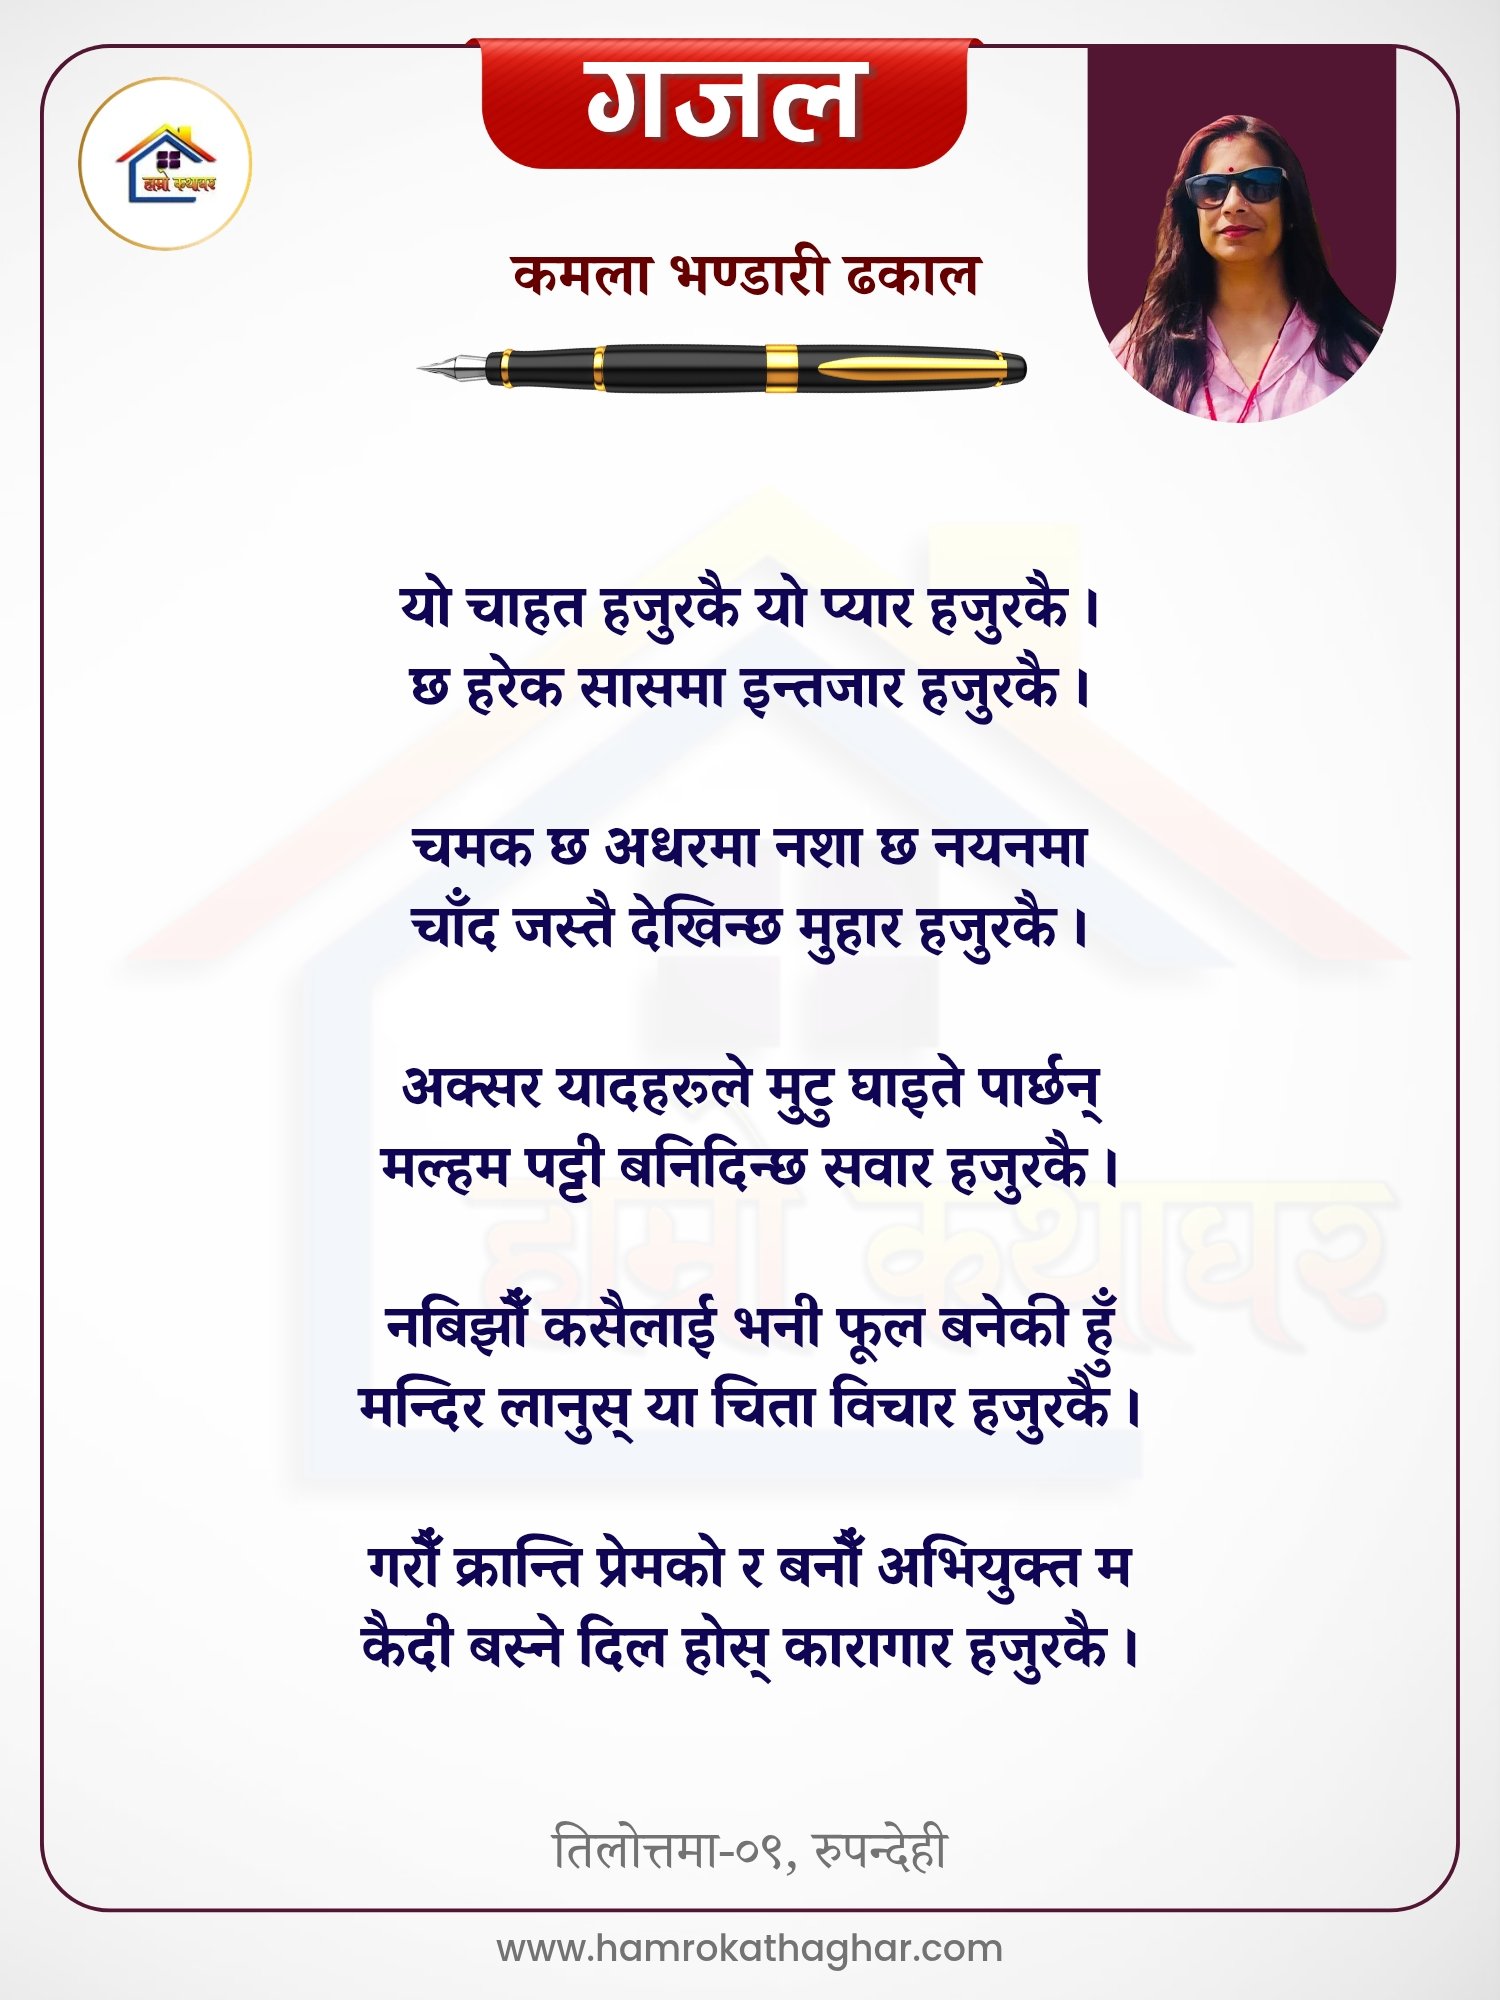 गजल
हाम्रो कथाघर
कमला भण्डारी ढकाल
यो चाहत हजुरकै यो प्यार हजुरकै ।
छ हरेक सासमा इन्तजार हजुरकै ।
चमक छ अधरमा नशा छ नयनमा
चाँद जस्तै देखिन्छ मुहार हजुरकै ।
अक्सर यादहरूले मुटु घाइते पार्छन्
मल्हम पट्टी बनिदिन्छ सवार हजुरकै ।
नबिझौँ कसैलाई भनी फूल बनेकी हुँ
मन्दिर लानुस् या चिता विचार हजुरकै ।
गरौँ क्रान्ति प्रेमको र बनौँ अभियुक्त म
कैदी बस्ने दिल होस् कारागार हजुरकै ।
हाम्रो कथाघर
तिलोत्तमा-०९, रुपन्देही
www.hamrokathaghar.com